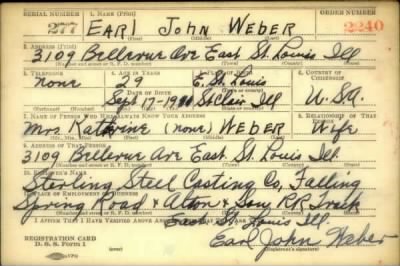 SERIAL NUMBER 1. NAME (Print) ORDER NUMBER
277 EARL JOHN WEBER 2240
(First) (Middle) (Last)
2. ADDRESS (Print)
3109 Bellevue Ave East St. Louis Ill
(Number and street or R. F. D. number) (Town) (County) (State)
3. TELEPHONE 4. AGE IN YEARS 5. PLACE OF BIRTH 6. COUNTRY OF CITIZENSHIP
none 29 E. St. Louis
DATE OF BIRTH
Sept 17-1911 St Clair Ill U.S.A.
(Exchange) (Number) (Mo.) (Day) (Yr.) (State or country)
7. NAME OF PERSON WHO WILL ALWAYS KNOW YOUR ADDRESS 8. RELATIONSHIP OF THAT PERSON
Mrs. Katherine (none) WEBER Wife
(Mr., Mrs., Miss) (First) (Middle) (Last)
9. ADDRESS OF THAT PERSON
3109 Bellevue Ave East St. Louis Ill
(Number and street or R. F. D. number) (Town) (County) (State)
10. EMPLOYER'S NAME
Sterling Steel Casting Co, Falling
11. PLACE OF EMPLOYMENT OR BUSINESS
Spring Road & Alton & Sou RR Track
East St Louis Ill
I AFFIRM THAT I HAVE VERIFIED ABOVE
REGISTRATION CARD
D. S. S. Form 1
Earl John Weber
(Registrant's signature)